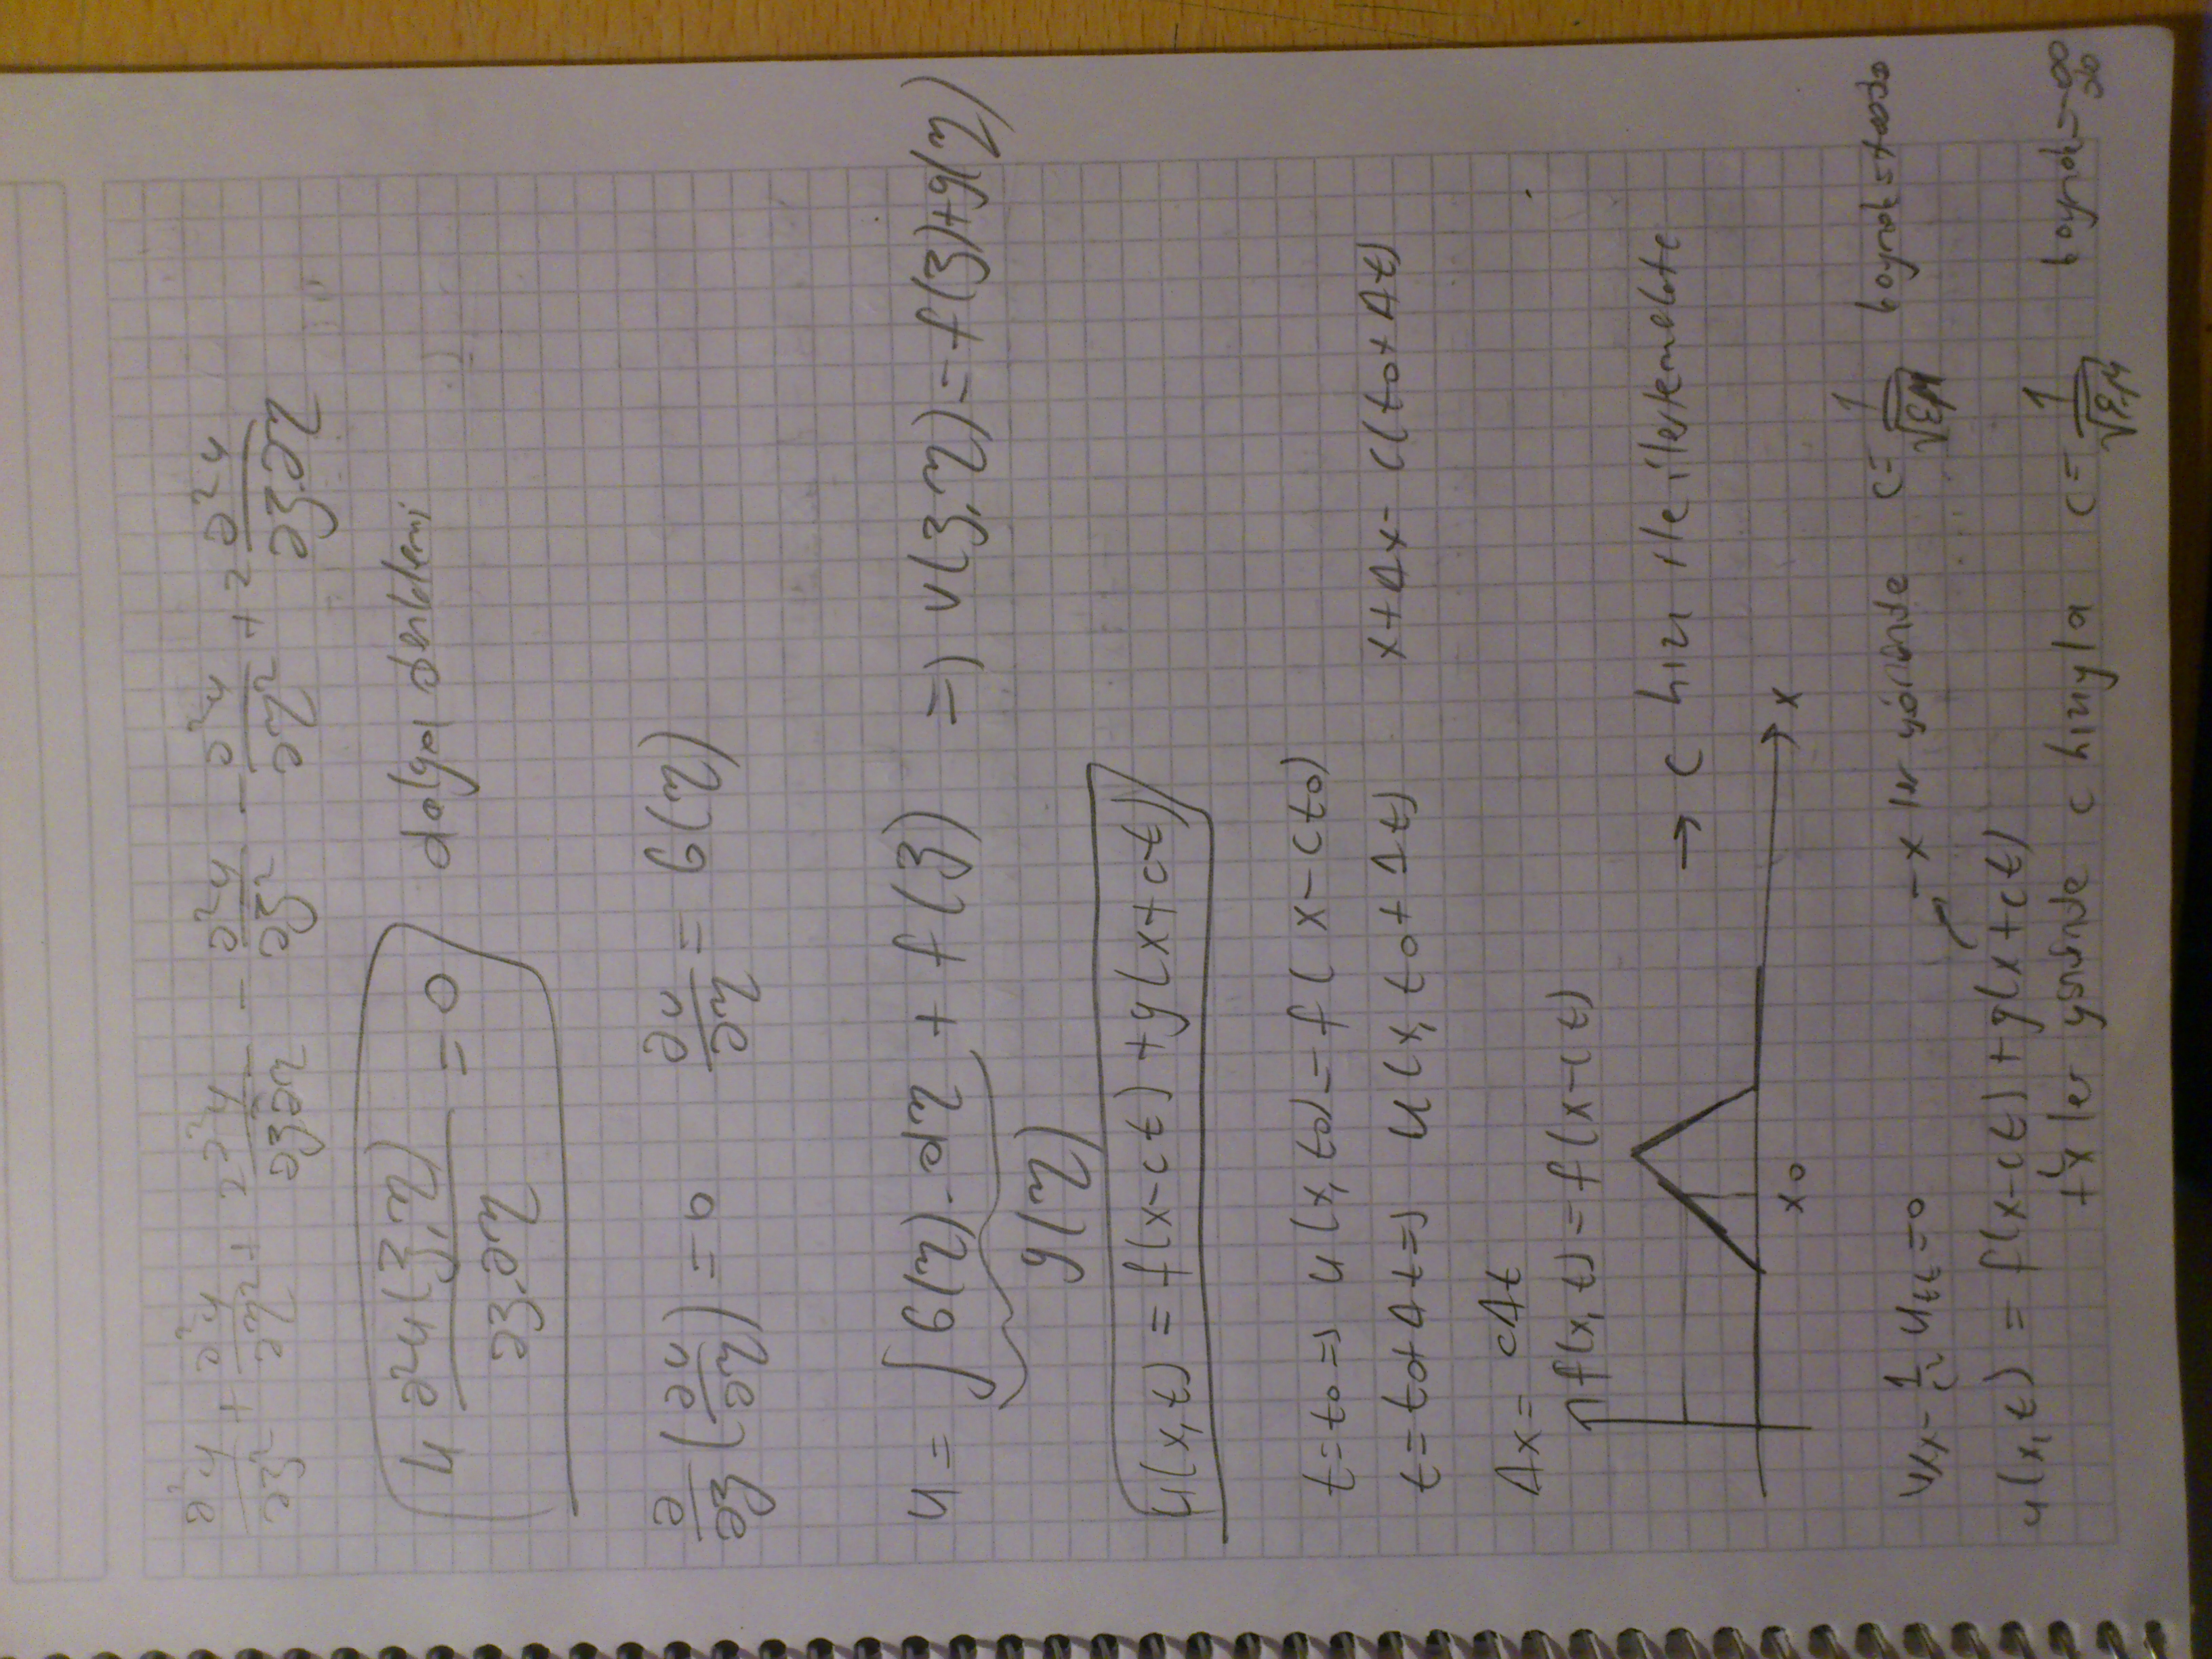 ∂²u/∂ξ² + ∂²u/∂η² + 2∂²u/∂ξ∂η - ∂²u/∂ξ² - ∂²u/∂η² + 2 ∂²u/∂ξ.∂η
4 ∂²u(ξ,η)/∂ξ.∂η = 0 dalga denklemi
∂/∂ξ (∂u/∂η) = 0 ∂u/∂η = G(η)
u = ∫G(η).dη + f(ξ) => u(ξ,η) = f(ξ)+g(η)
g(η)
u(x,t) = f(x-ct) + g(x+ct)
t=t0 => u(x,t0) = f(x-ct0)
t=t0+Δt => u(x,t0+Δt) x+Δx-c(t0+Δt)
Δx = cΔt
f(x,t) = f(x-ct)
→ c hızı ile ilerlemekte
x0 x
uxx - 1/c² utt = 0 -x ler yönünde c = 1/√εμ kaynak=+∞da
u(x,t) = f(x-ct) + g(x+ct)
+x ler yönünde c hızıyla c = 1/√εμ kaynak=-∞